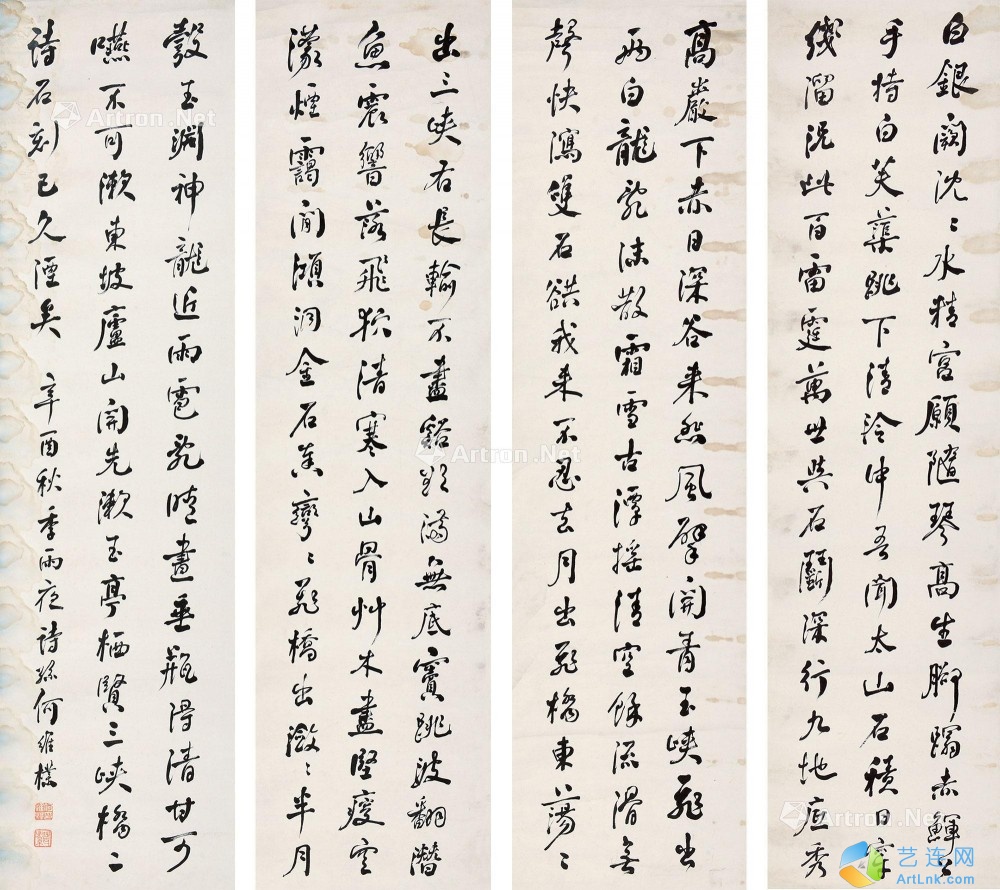 白銀闕沈〻水精宮願隨琴高生腳蹋赤鯶公
手持白芙蕖跳下清泠中吾聞太山石積日穿
綫溜況此百雷霆萬世與石鬭深行九地底秀
高巖下赤日深谷來悲風擘開青玉峽飛出
兩白龍亂沫散霜雪古潭搖清空餘流滑無
聲快瀉雙石谼我來不忍去月出飛橋東蕩〻
出三峽右長輸不盡谿欲滿無底竇跳波翻潛
魚震響落飛狖清寒入山骨艸木盡堅瘦空
濛煙靄間澒洞金石奏彎〻飛橋出瀲〻半月
彀玉淵神龍近雨雹亂晴晝垂瓶得清甘可
嚥不可漱東坡廬山開先漱玉亭栖賢三峽橋二
詩石刻已久湮矣 辛酉秋季雨夜詩孫何維樸
Artron.Net
Artron.Net
Artron.Net
Artron.Net
Artron.Net
Artron.Net
艺连网
ArtLnk.com